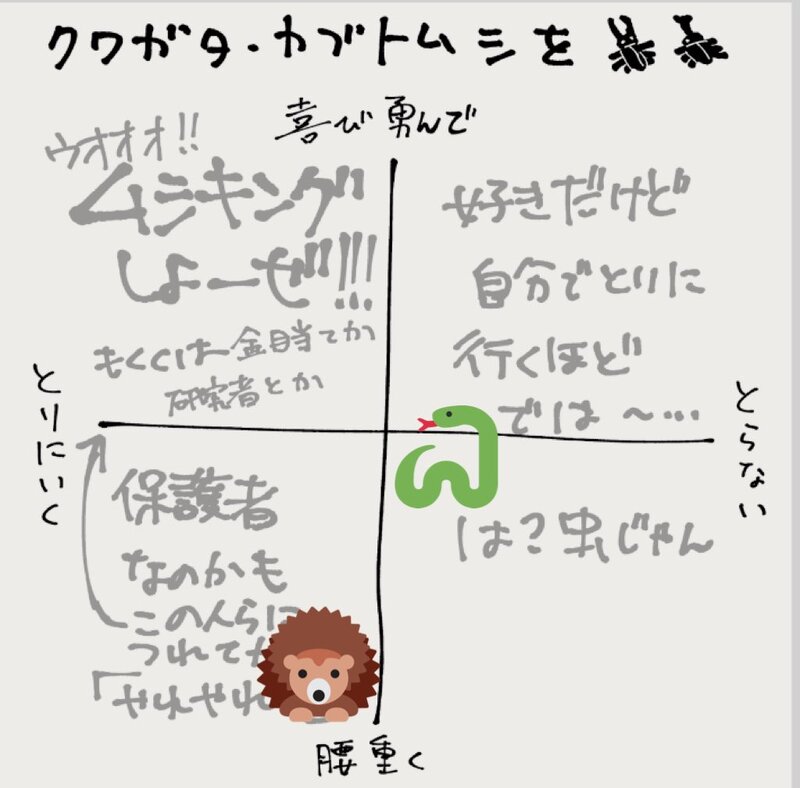 クワガタ・カブトムシを
喜び勇んで
ウオオオ!!
ムシキング
しよーぜ!!!
もしくは金目当てか
研究者とか
好きだけど
自分でとりに
行くほど
では〜…
とりにいく
とらない
保護者
なのかも
この人らに
つれてか
「やれやれ
は?虫じゃん
腰重く